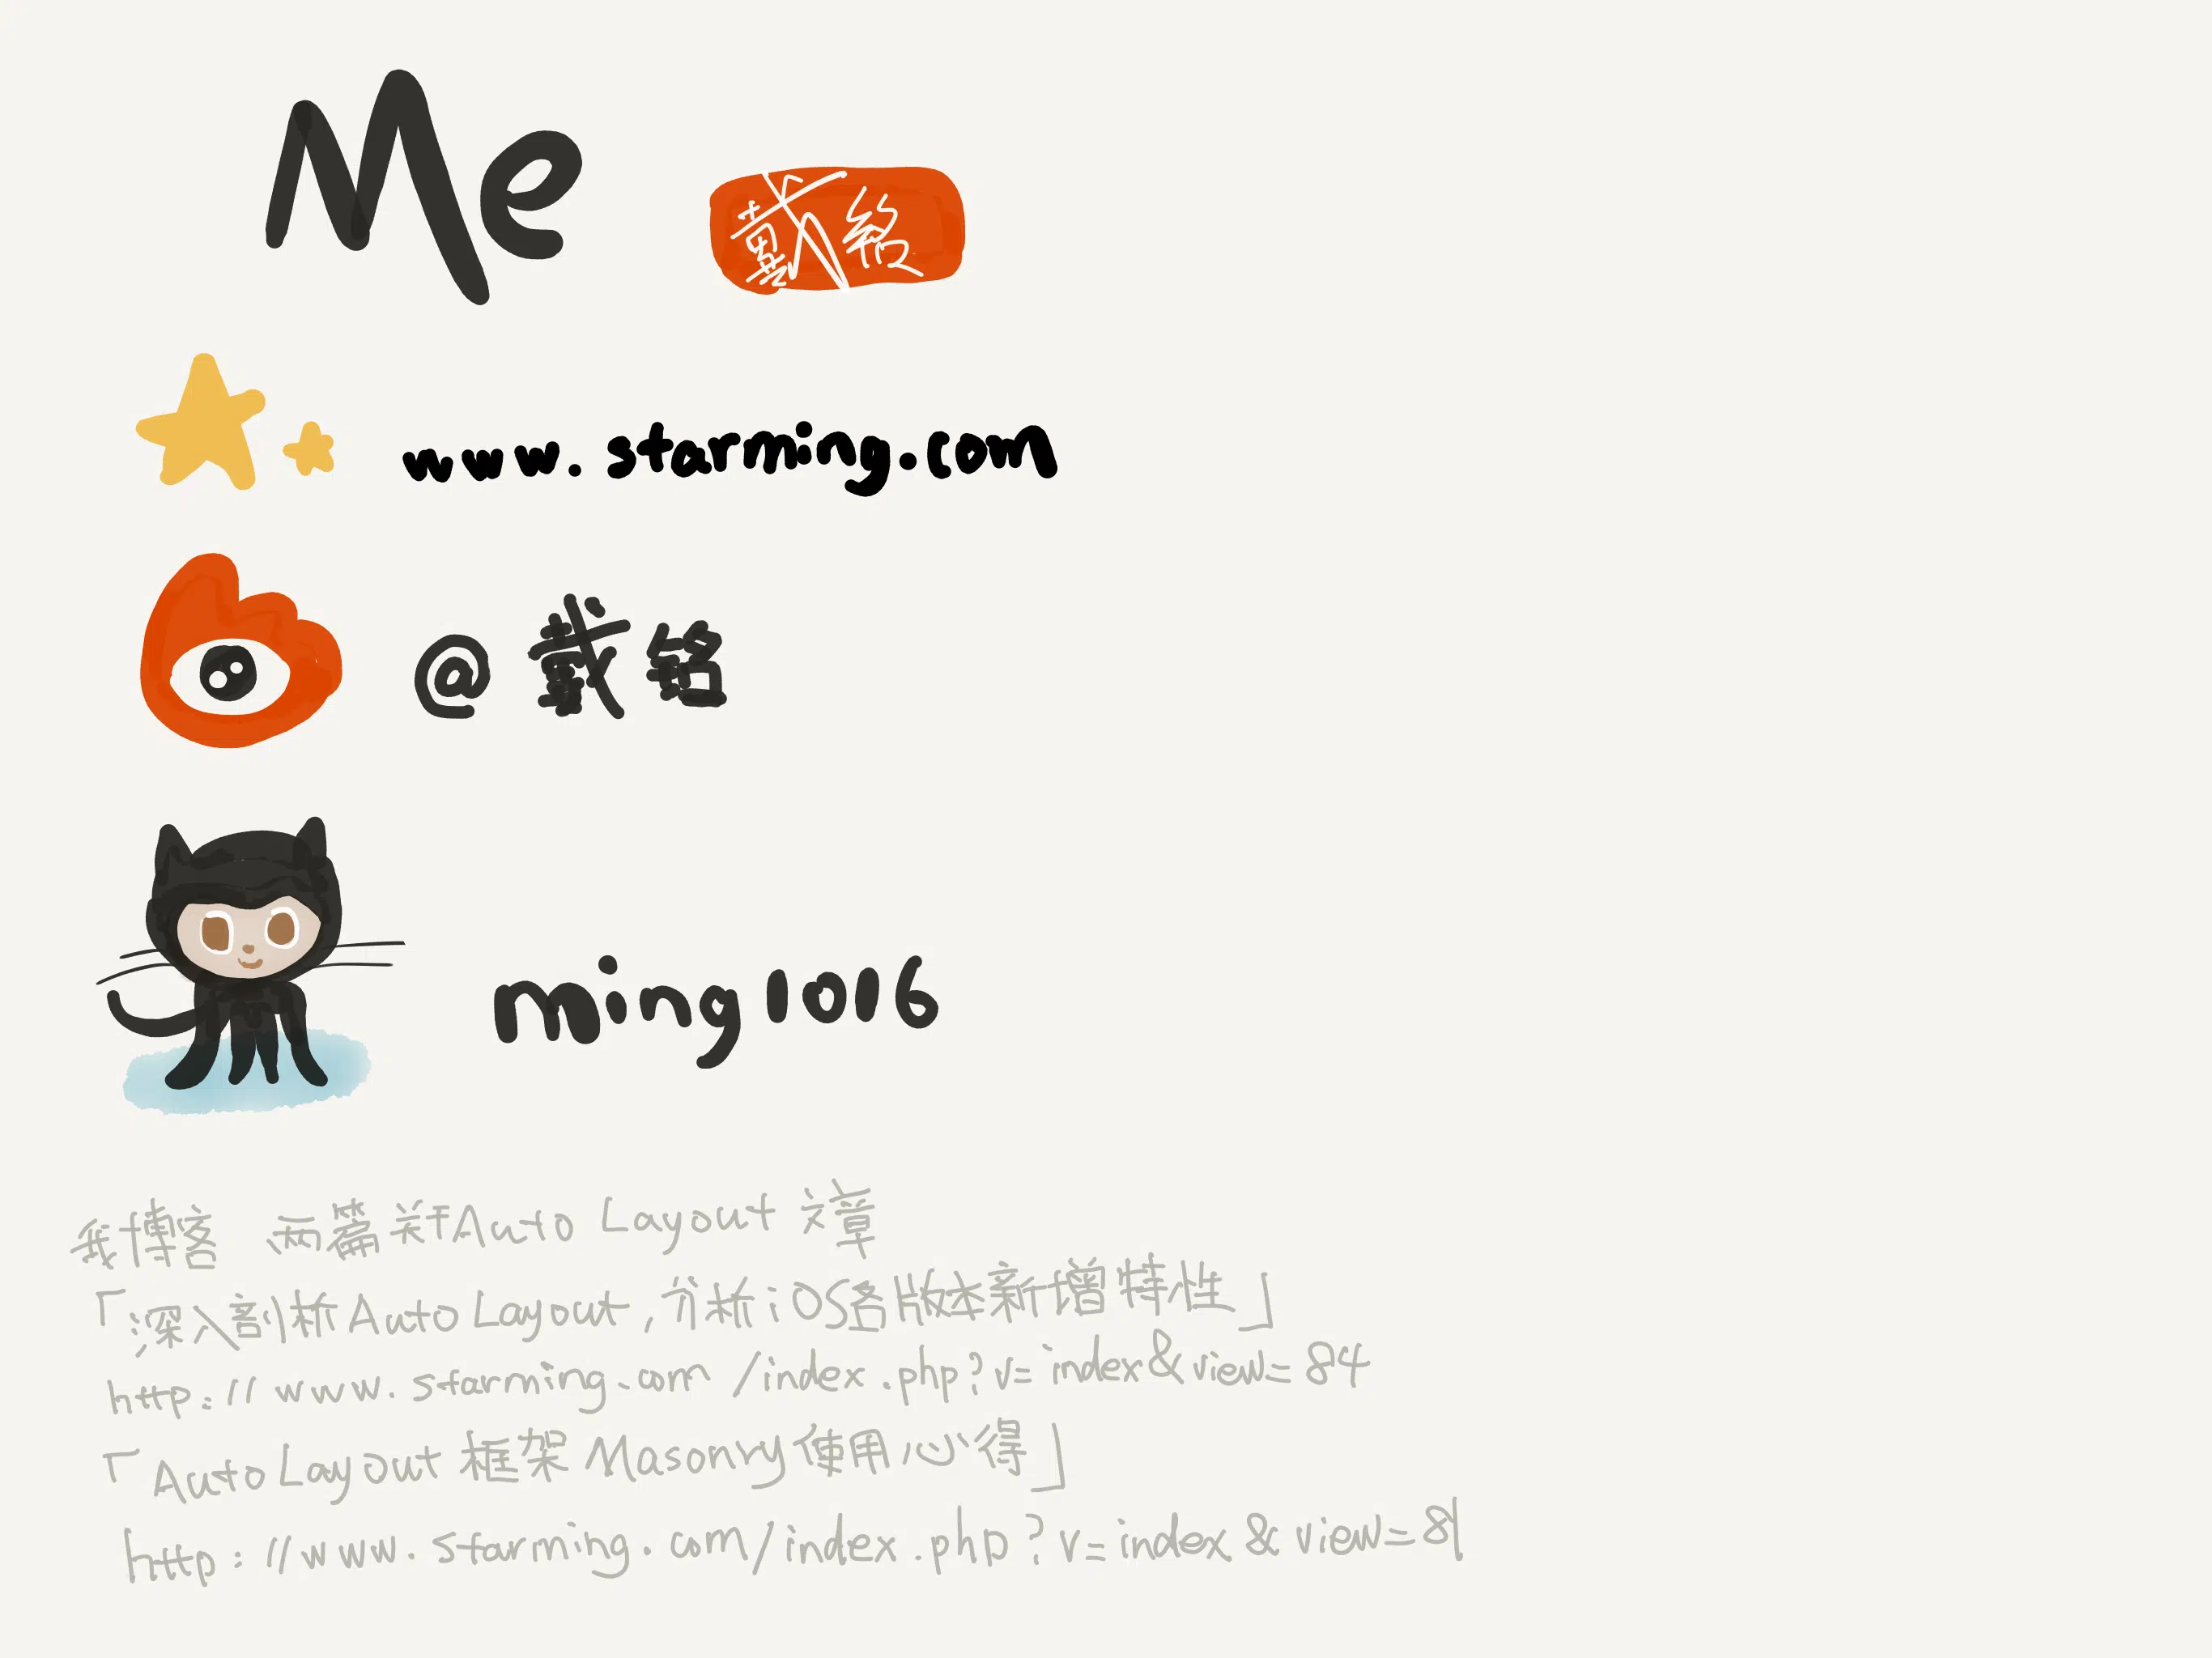 Me 戴铭
www.starming.com
@戴铭
ming1016
我博客 两篇关于Auto Layout 文章
「深入剖析Auto Layout,分析iOS各版本新增特性」
http://www.starming.com/index.php?v=index&view=84
「AutoLayout框架Masonry使用心得」
http://www.starming.com/index.php?v=index&view=81